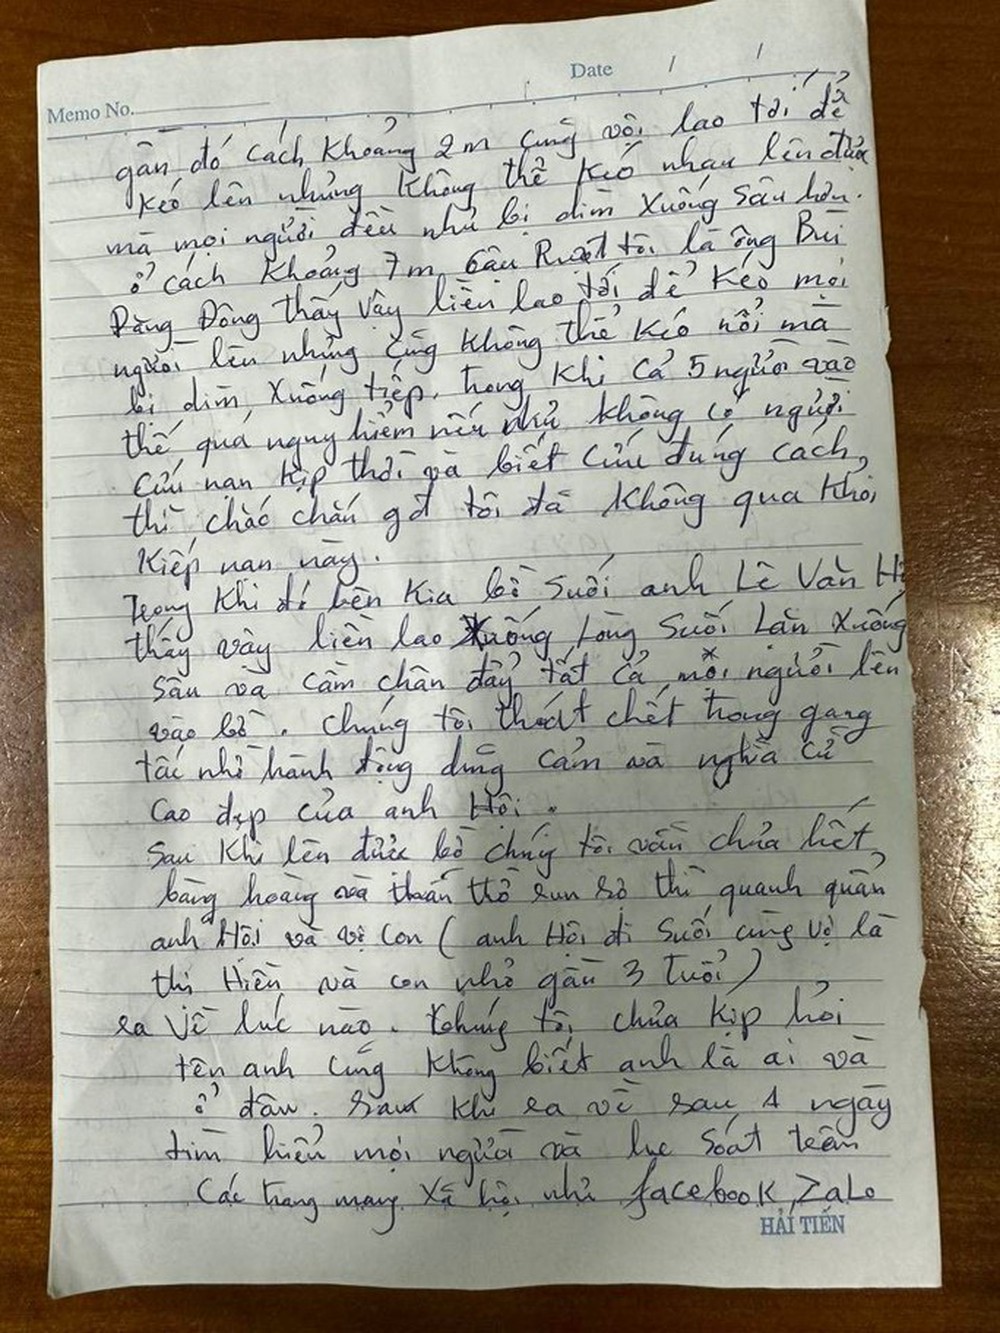 Date / /
Memo No.
gần đó cách khoảng 2m cũng vội lao tới để
kéo lên nhưng không thể kéo nhau lên được
mà mọi người đều như bị dìm xuống sâu hơn.
ở cách khoảng 7m, cậu Ruột tôi là ông Bùi
Đăng Đông thấy vậy liền lao tới để kéo mọi
người lên nhưng cũng không thể kéo nổi mà
bị dìm xuống tiếp. trong khi cả 5 người vào
thế quá nguy hiểm nếu như không có người
cứu nạn kịp thời và biết cứu đúng cách,
thì chắc chắn gđ tôi đã không qua khỏi
kiếp nạn này.
Trong khi đó bên kia bờ suối anh Lê Văn
thấy vậy liền lao xuống lòng suối lặn xuống
sâu và cầm chân đẩy tất cả mọi người lên
vào bờ. chúng tôi thoát chết trong gang
tấc nhờ hành động dũng cảm và nghĩa cử
cao đẹp của anh Hội.
sau khi lên được bờ chúng tôi vẫn chưa hết
bàng hoàng và thẫn thờ run sợ thì quanh quẩn
anh Hội và vợ con (anh Hội đi suối cùng vợ là
thị Hiền và con nhỏ gần 3 tuổi)
ra về lúc nào. chúng tôi chưa kịp hỏi
tên anh cũng không biết anh là ai và
ở đâu. sau khi ra về sau 1 ngày
tìm hiểu mọi người và lục soát trên
các trang mạng xã hội như facebook, ZaLo
HẢI TIẾN